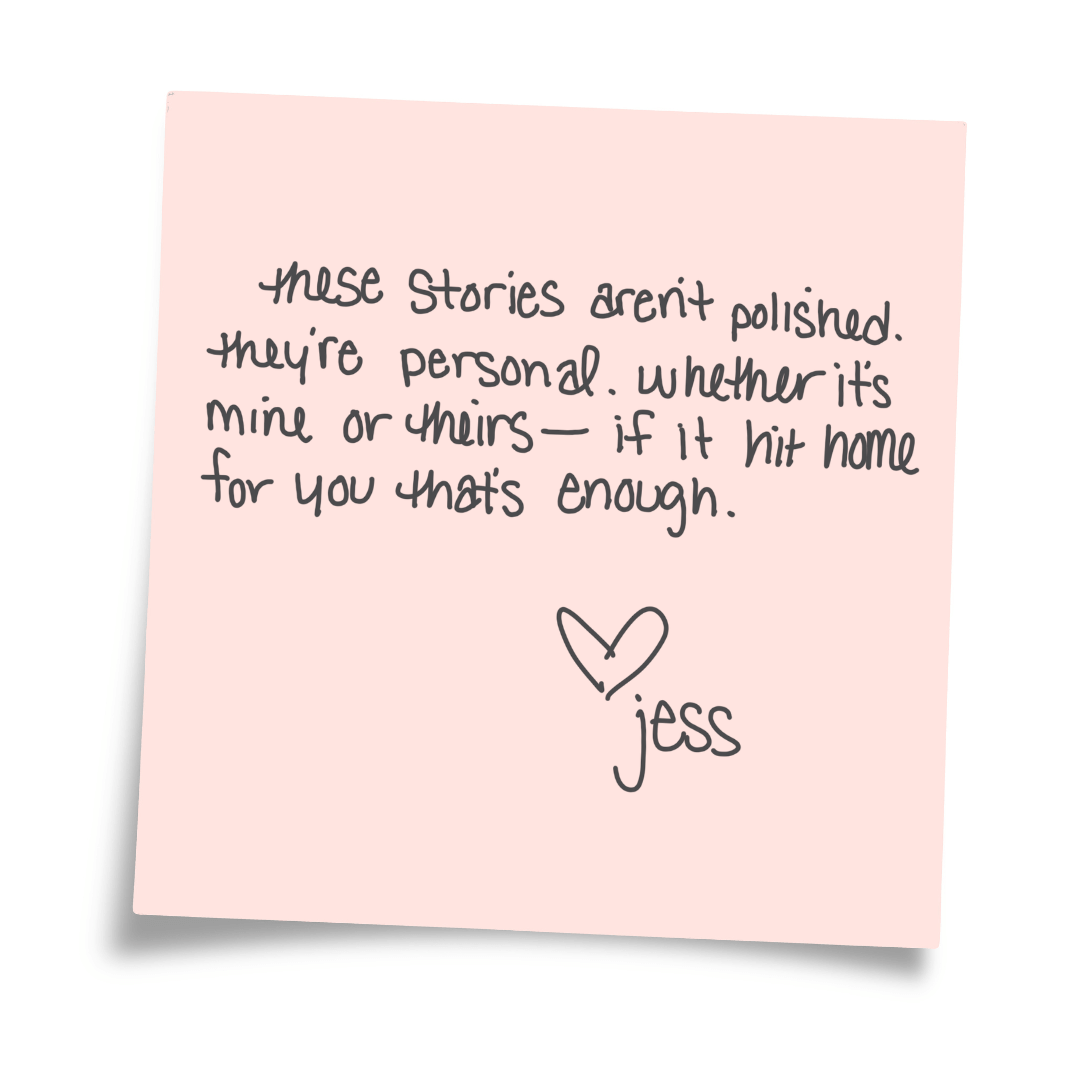 these stories aren't polished.
they're personal. whether it's
mine or theirs— if it hit home
for you that's enough.
jess